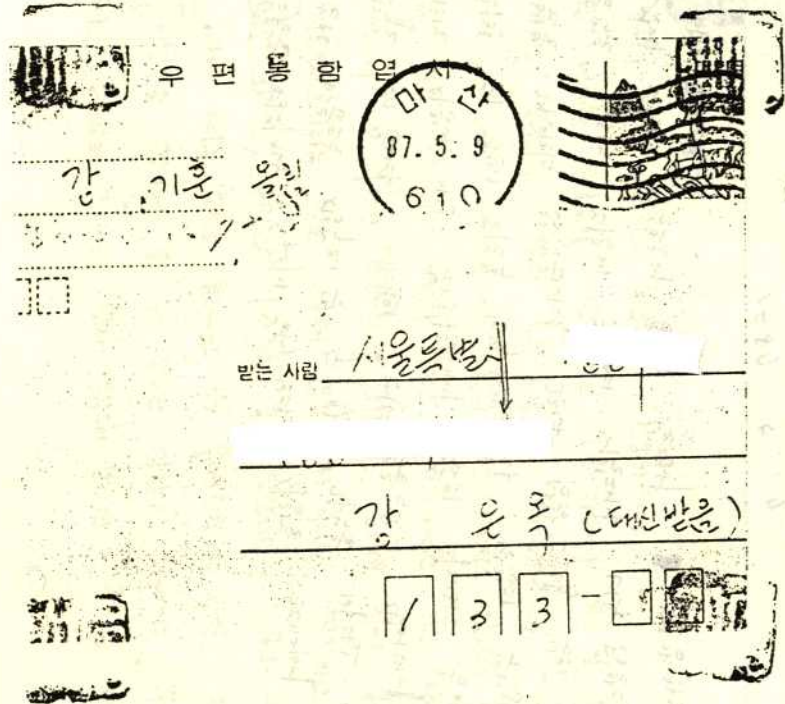 우편봉함엽서
마산
87. 5. 9
610
강 기훈 올림
받는 사람 서울특별시
강 은옥 (대신받음)
133-